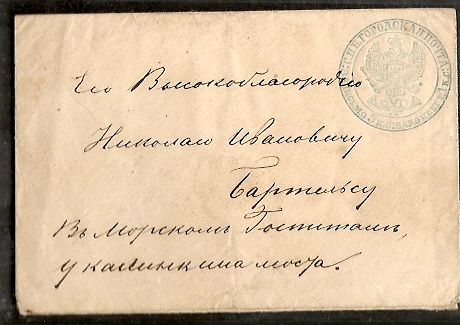 СПБ. ГОРОДСКАЯ ПОЧТА
Его Высокоблагородію
Николаю Ивановичу
Бартельсу
Въ Морскомъ Госпиталѣ,
у калинкина моста.